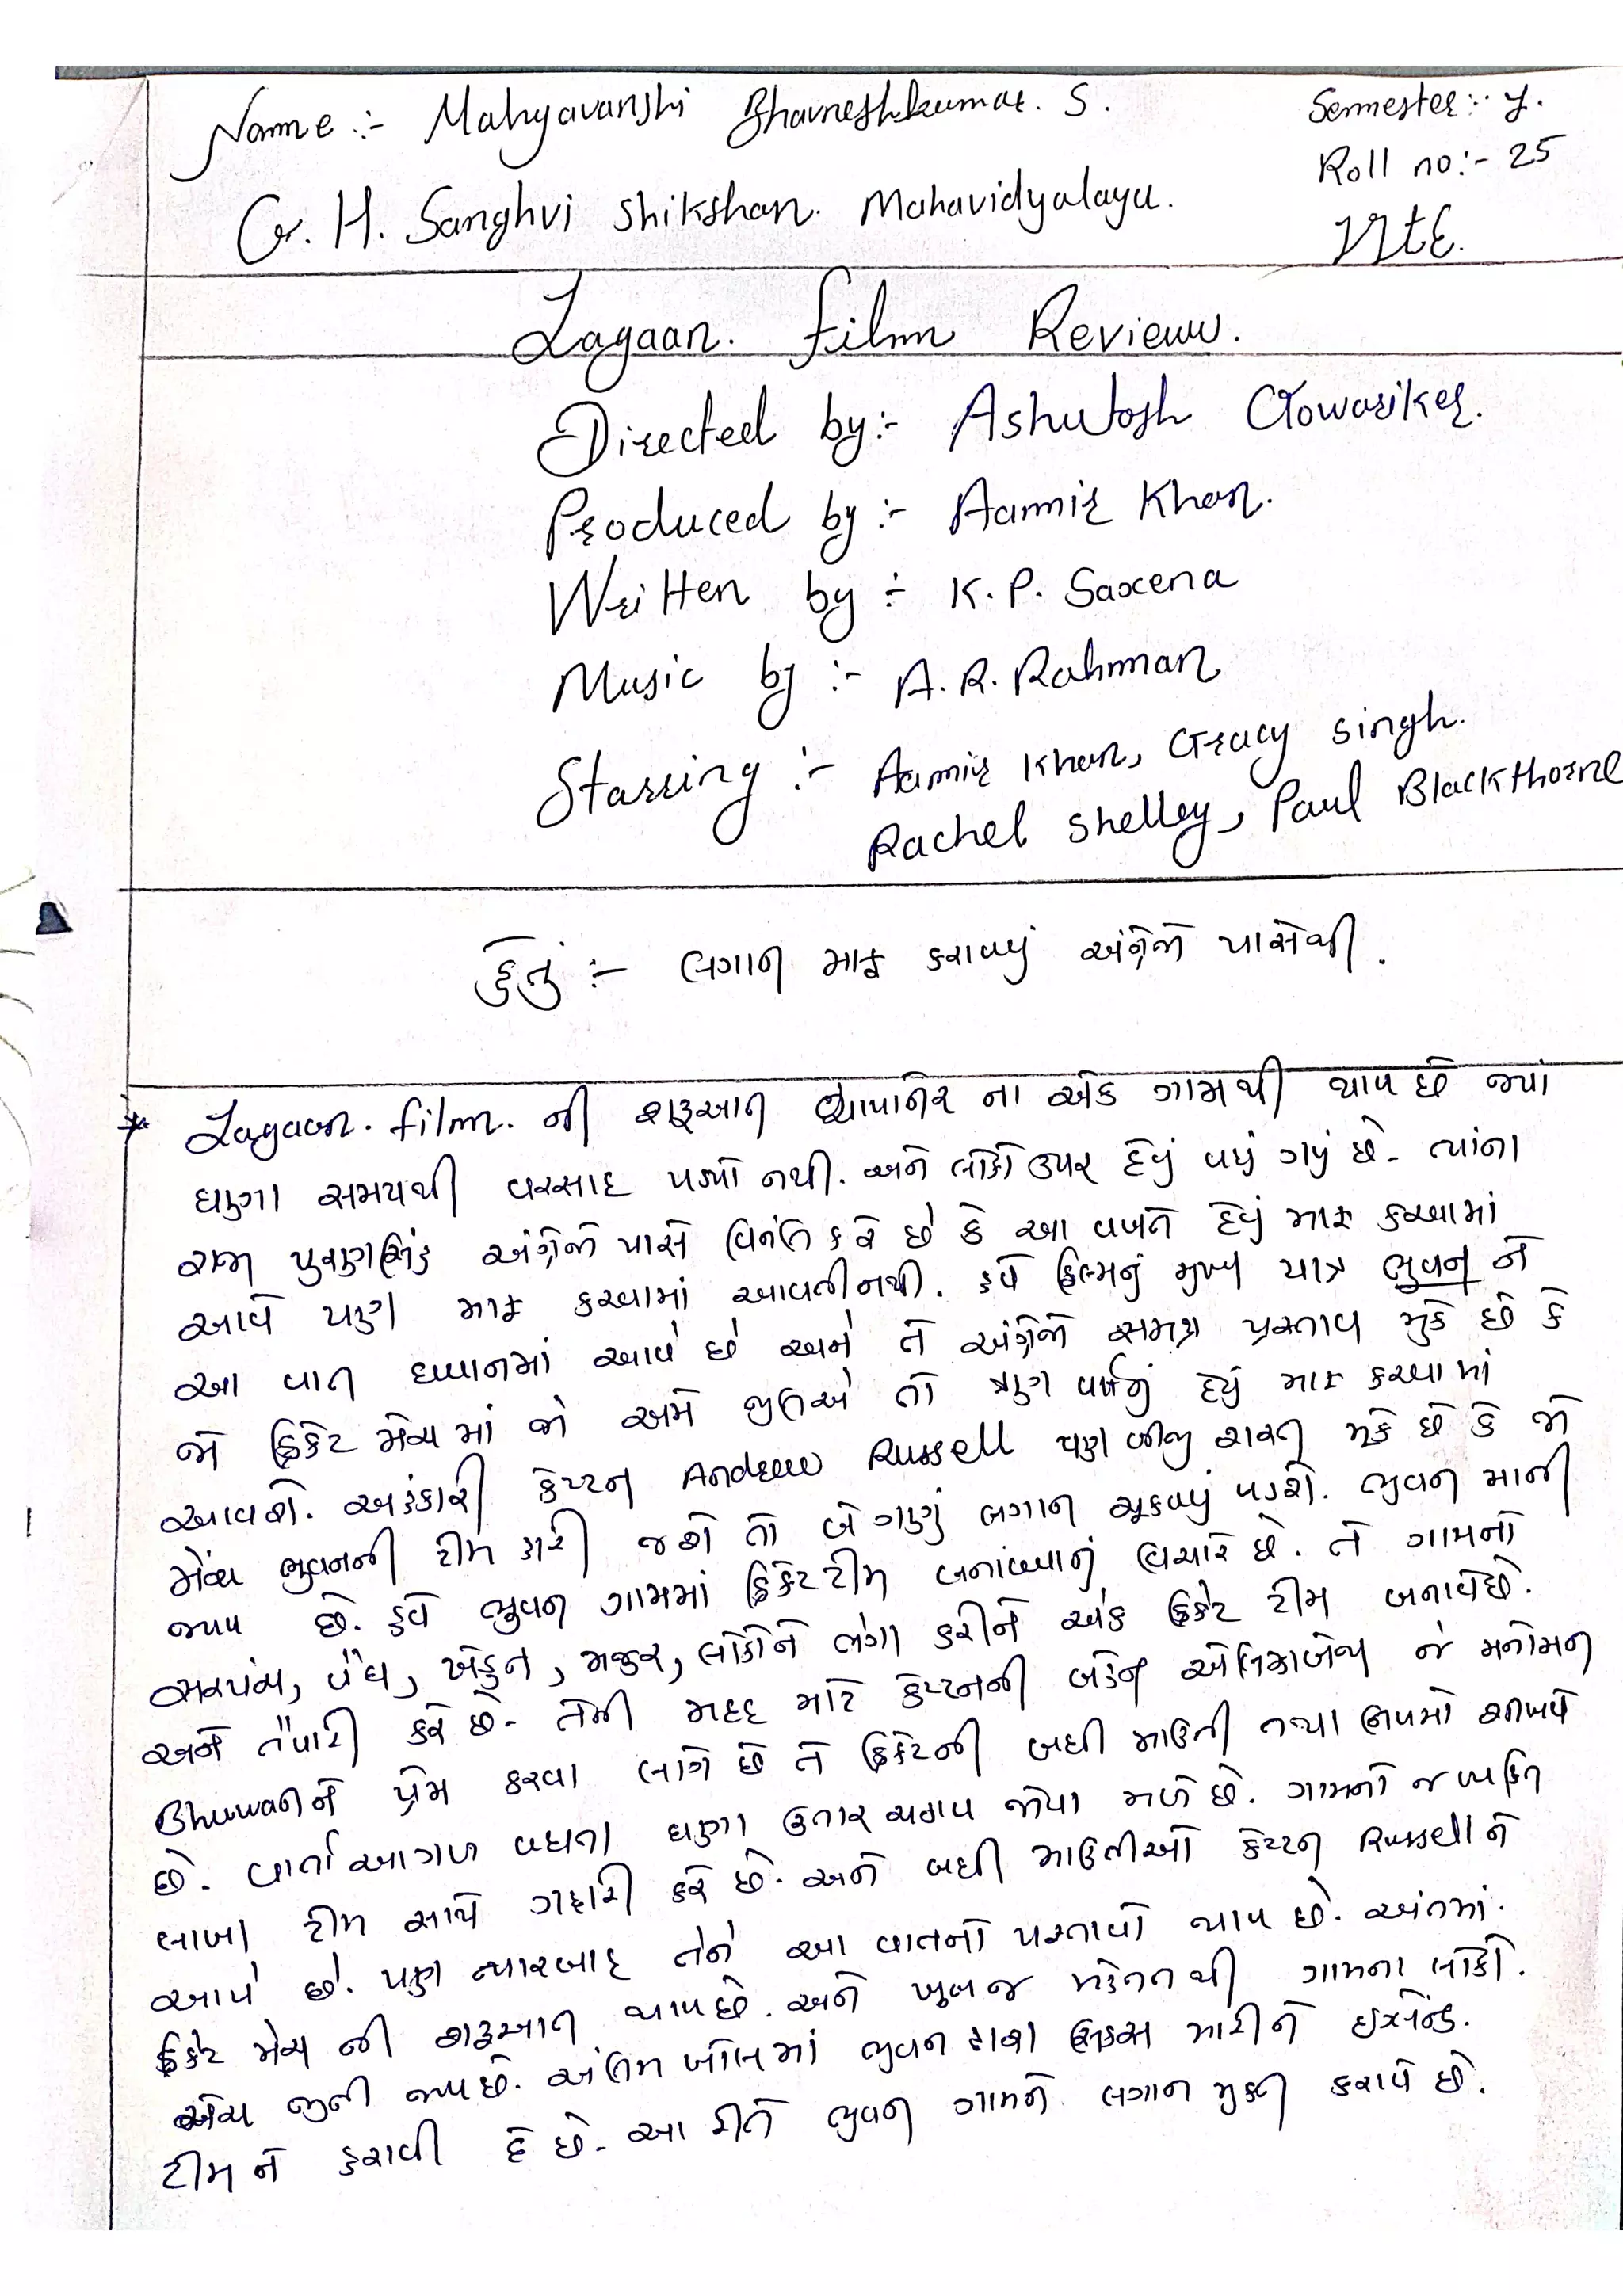 Name :- Mahyavanshi Bhavneshkumar. S.
Semester :- y.
Roll no :- 25
G. H. Sanghvi Shikshan. Mahavidyalaya.
Lagaan. Film Revieww.
Directed by :- Ashutosh Gowariker.
Produced by :- Aamir Khan.
Written by :- K. P. Saxena
Music by :- A. R. Rahman
Starring :- Aamir Khan, Gracy singh.
Rachel Shelley, Paul Blackthorne
હેતું :- લગાન માફ કરાવવું અંગ્રેજો પાસેથી.
* Lagaan. film. ની શરૂઆત ચાંપાનેર ના એક ગામથી થાય છે જ્યાં
ઘણા સમયથી વરસાદ પડ્યો નથી. અને લોકો ઉપર દેવું વધું ગયું છે. ત્યાંના
રાજા પુરણસિંહ અંગ્રેજો પાસે વિનંતિ કરે છે કે આ વખતે દેવું માફ કરવામાં
આવે પણ માફ કરવામાં આવતીનથી. હવે ફિલ્મનું મુખ્ય પાત્ર ભુવન ને
આ વાત ધ્યાનમાં આવે છે અને તે અંગ્રેજો સમક્ષ પ્રસ્તાવ મુકે છે કે
જો ક્રિકેટ મેચ માં જો અમે જીતિએ તો ત્રણ વર્ષનું દેવું માફ કરવામાં
આવશે. અહંકારી કેપ્ટન Andrew Russell પણ બીજી શરત મૂકે છે કે જો
મેચ ભુવનની ટીમ હારી જશે તો બે ગણું લગાન ચૂકવવું પડશે. ભુવન માની
જાય છે. હવે ભુવન ગામમાં ક્રિકેટટીમ બનાવવાનું વિચારે છે. તે ગામનો
સરપંચ, વૈધ, ખેડુત, મજુર, લોકોને ભેગા કરીને એક ક્રિકેટ ટીમ બનાવેછે.
અને તૈયારી કરે છે. તેની મદદ માટે કેપ્ટનની બહેન એલિઝાબેથ જે મનોમન
Bhuwanને પ્રેમ કરવા લાગે છે તે ક્રિકેટની બધી માહિતી તથા નિયમો શીખવે
છે. વાર્તા આગળ વધતા ઘણા ઉતાર ચઢાવ જોવા મળે છે. ગામનો જ વ્યક્તિ
લાખા ટીમ સાથે ગદ્દારી કરે છે. અને બધી માહિતીઓ કેપ્ટન Russellને
આપે છે. પણ ત્યારબાદ તેને આ વાતનો પસ્તાવો થાય છે. અંતમાં.
ક્રિકેટ મેચ ની શરૂઆત થાયછે. અને ખુબજ મહેનતથી ગામના લોકો.
મેચ જીતી જાયછે. અંતિમ બોલમાં ભુવન દ્વારા સિક્સ મારીને ઇંગ્લેન્ડ.
ટીમ ને હરાવી દે છે. આ રીતે ભુવન ગામને લગાન મુક્ત કરાવે છે.